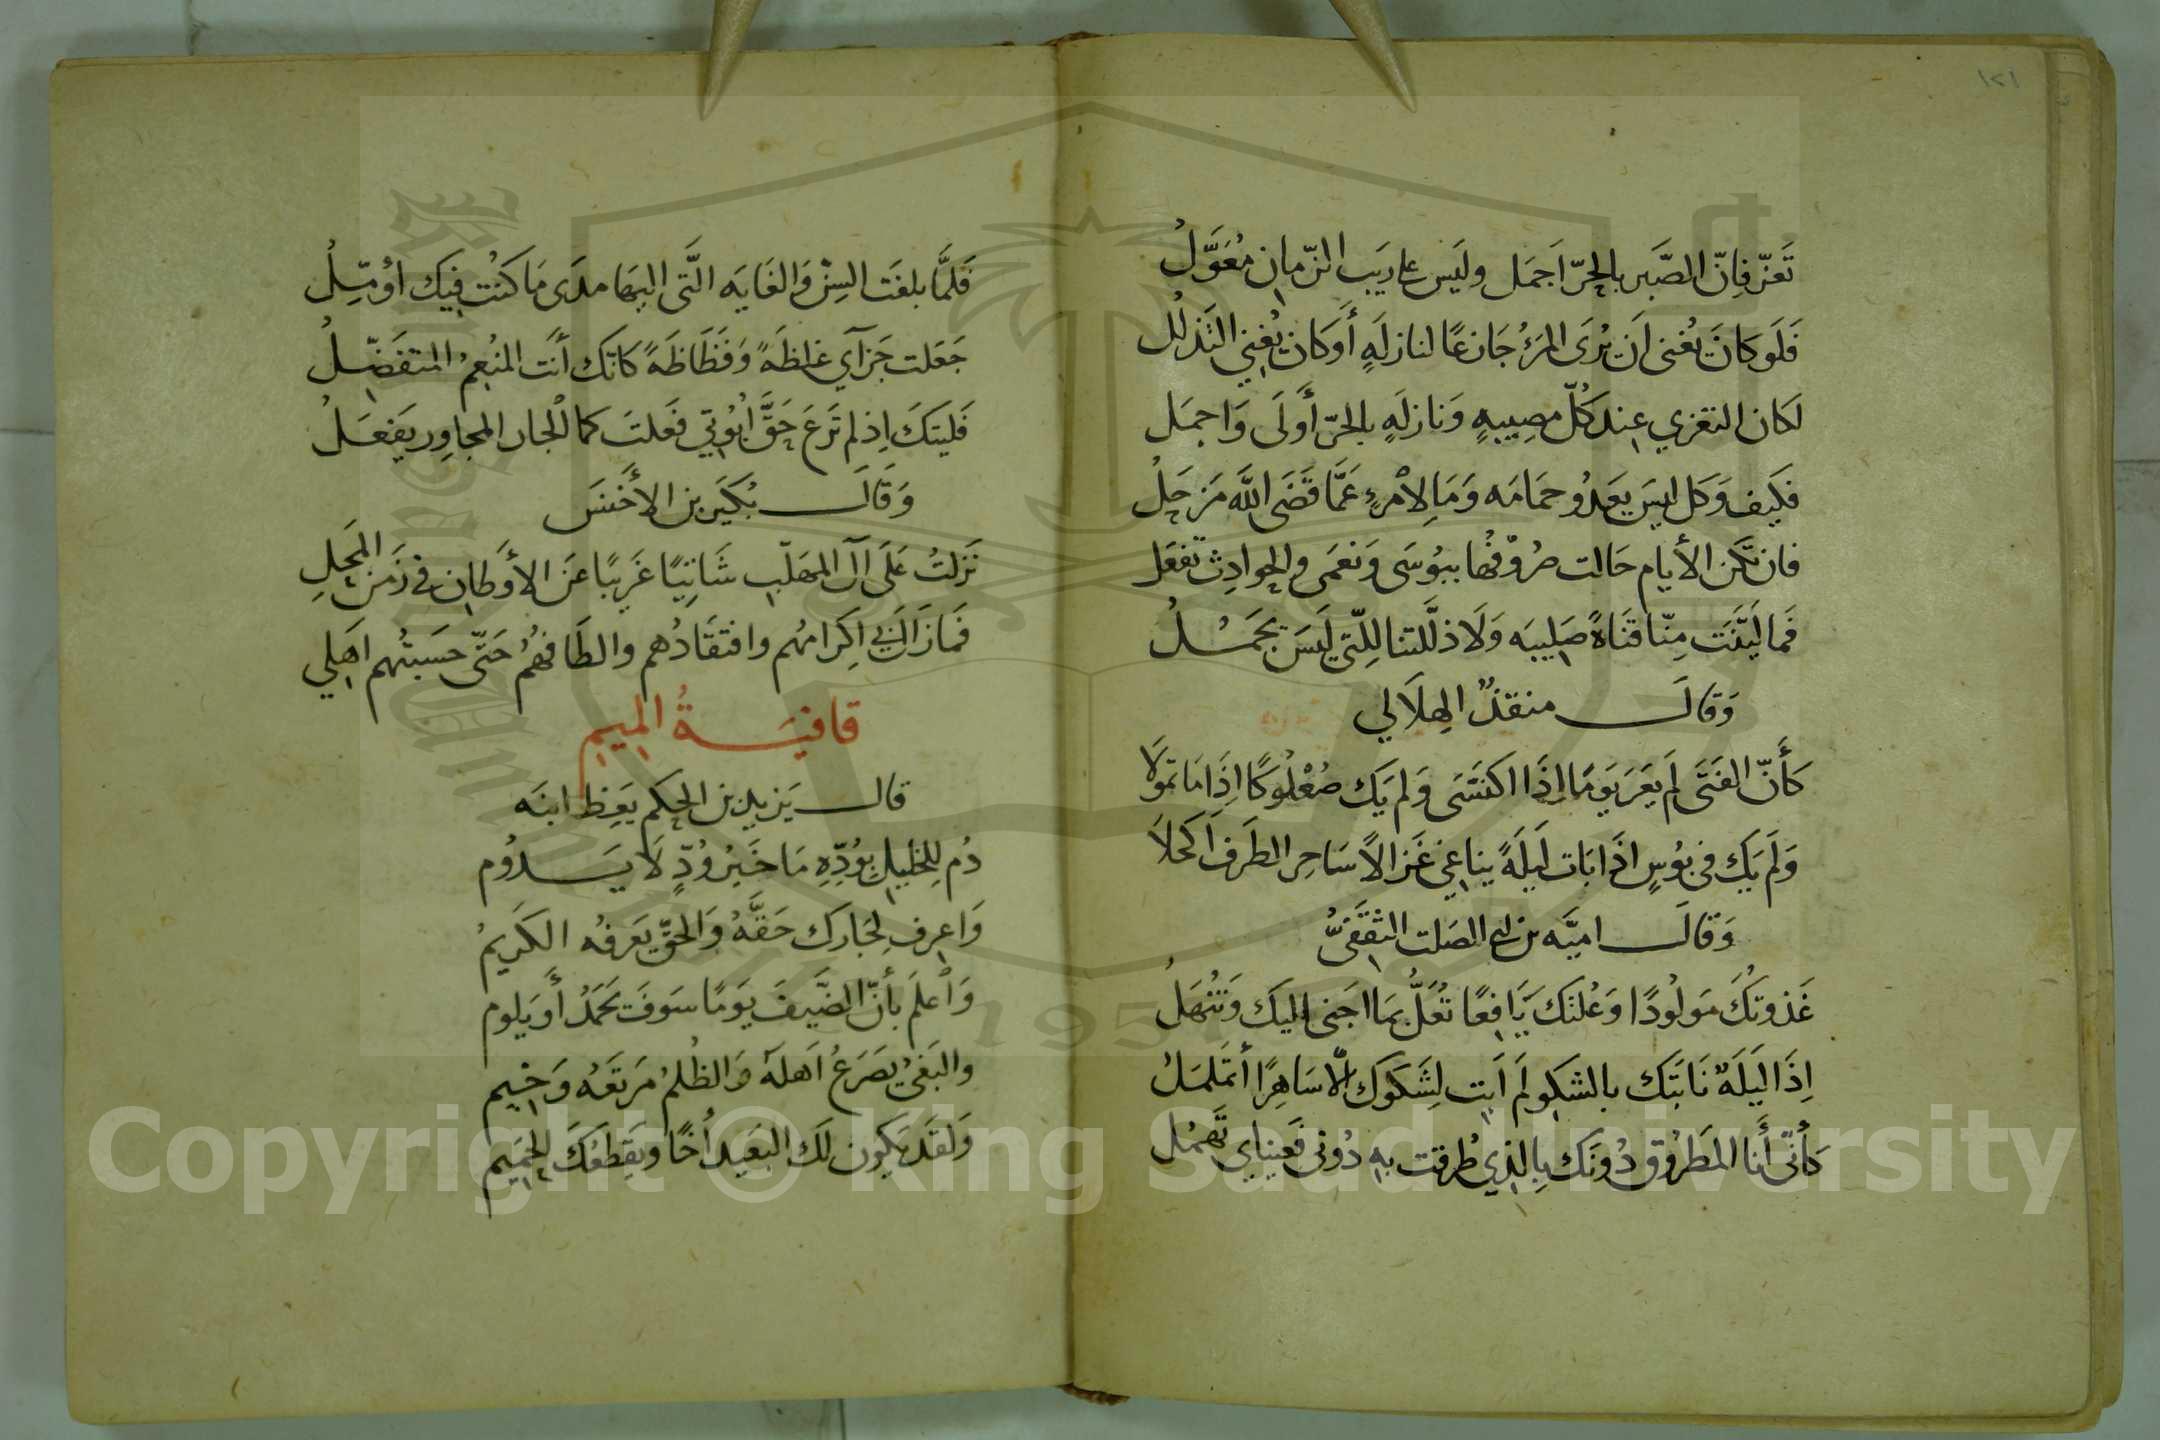 ١٢١
تَعزّ فِانّ الصَّبر بالحرّ اَجمَل ولَيس على رَيَب الزّمان مُعَوَّلُ
فَلَو كانَ يُغنى اَن يُرَى المَرُ جَازعًا لنازلَهٍ أَو كان يُغني التَذلُل
لَكان التعزي عِند كُلّ مصِيبهٍ وَنازلَهٍ بالحرّ أَولَى وَاجمَل
فكَيف وَكل ليسَ يَعدُو حمَامَه وَمَا لِاْمرءٍ عَمَّا قَضَى اللَّه مَزحَلُ
فان تَكن الأيام حَالت صُرُوْفُها ببُوسَى وَنعمَى والحوادِث تَفعَل
فَما لَيَّنَت مِنّا قَنَاهً صَلِيبَه وَلَا ذلَّلتنا للِّتي لَيسَ تجمُـــلُ
وَقالَــــ منقذٌ الهِلَالي
كَأَنّ الفَتَى لَم يَعرَ يَومًا اِذَا اكتسَى وَلم يَك صُعْلُوكًا اِذَا مَا تموَّلا
وَلَم يَك في بوُسٍ اذَا بَات لَيلَهً يناغِي غَزالاً سَاحِر الطَرفَ اَكحَلاَ
وَقالَــــ اميَّه بن ابى الصَلت الثقَفىُّ
غَذوتكَُ مَولُودًا وَعُلتك يَافِعًا تُعَلُّ بمَا اجَنى اليَك وَتُنهَلُ
اِذَا لَيلَهٌ نَابَتَك بالشكو لَم اَبت لِشَكوكَ الّا سَاهِرًا أتمَلمَلُ
كأَنّى أَنا المَطرُوْق دُوْنَك بِالذِي طُرقت بهِ دُونى فَعينَاي تَهمُل
فَلَمَّا بلغتَ السِنّ وَالغَايَه الَّتى اليهَا مدَى مَا كَنُت فيك اؤمّلُ
جَعَلت جَزآي غِلظَهً وَفَظَاظَهً كانّك أنَت المُنعِمُ المتفَضّلُ
فَليتَكَ اِذ لم تَرعَ حَقَّ اُبُوّتي فَعَلتَ كما الْجار المجاوِر يَفعَـلُ
وَقَالَــــ بُكَير بن الأخنسَ
نَزلتُ عَلَى آل المهَلّب شَاتِيًا غَريبًا عَن الأوَطان في زَمَن المحَلِ
فَمَا زَال بي اكِرَامهُم وافتقَادُهم والطَافهُمُ حَتّى حَسبتُهم اَهلي
قافيَـــةُ الميم
قالــــ يَزيد بن الحكم يَعِظ ابنَه
دُم لِلخليل بوُدِّهِ مَا خَيرُ وُدٍّ لَا يَــدُوم
وَاعرِف لِجَارَك حَقَّهُ وَالحقّ يَعرفُه الكَريمُ
وَاْعلَم بأنّ الضَّيفَ يَومًا سَوفَ يَحَمَدُ أَو يَلوم
والبَغيُ يَصَرَعُ اَهلَهُ وَالظُلمُ مَرتَعُه وَخيم
وَلقَد يَكون لَك البَعَيد اُخًا وَيَقِطَعُكَ الحَميم